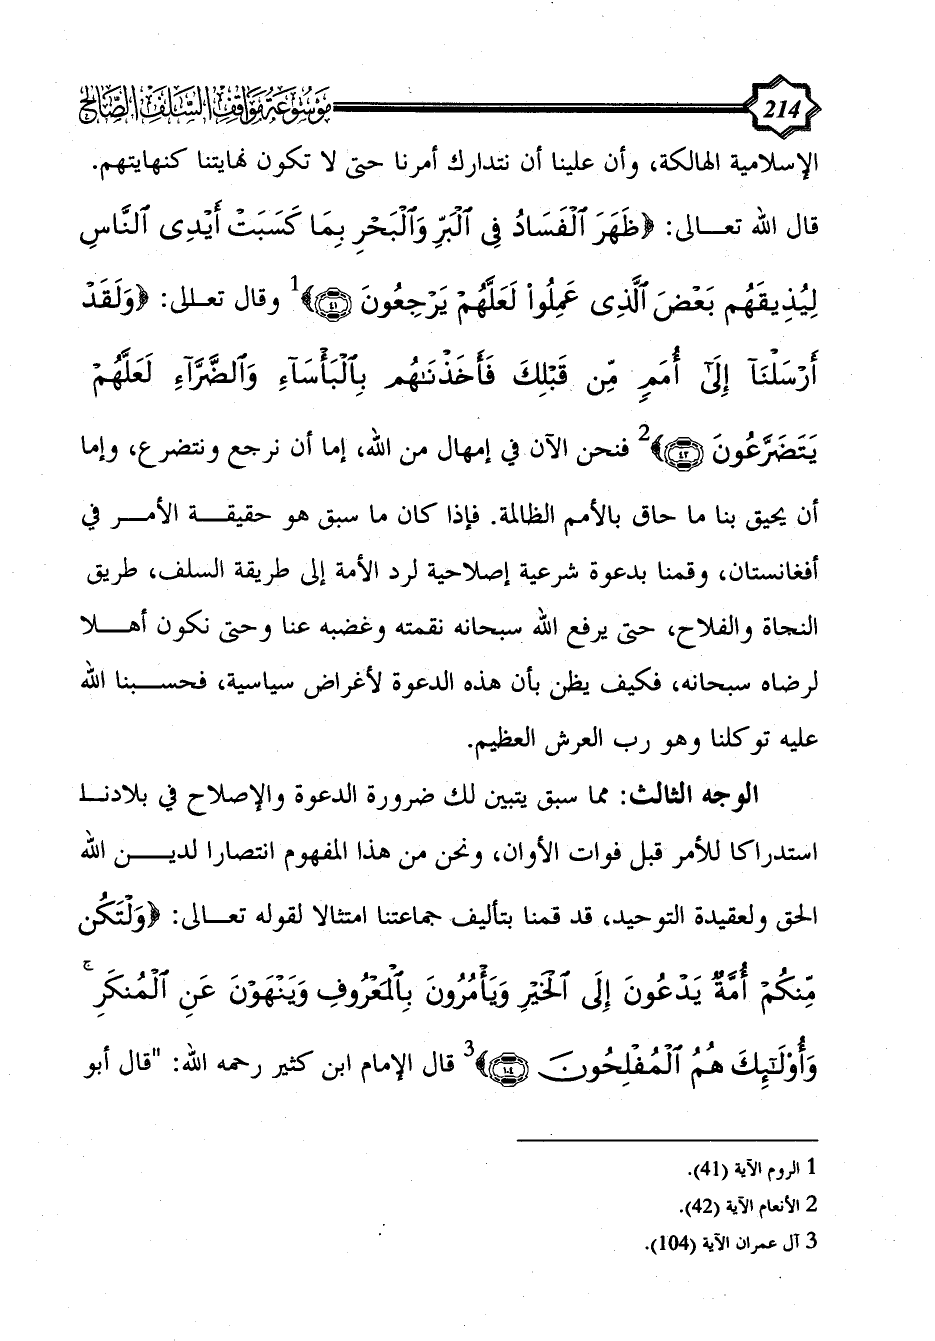 214 موسوعة مواقف السلف الصالح
الإسلامية الهالكة، وأن علينا أن نتدارك أمرنا حتى لا تكون نهايتنا كنهايتهم.
قال الله تعـــالى: ﴿ظَهَرَ ٱلْفَسَادُ فِى ٱلْبَرِّ وَٱلْبَحْرِ بِمَا كَسَبَتْ أَيْدِى ٱلنَّاسِ
لِيُذِيقَهُم بَعْضَ ٱلَّذِى عَمِلُوا۟ لَعَلَّهُمْ يَرْجِعُونَ ٤١﴾1 وقال تعلل: ﴿وَلَقَدْ
أَرْسَلْنَآ إِلَىٰٓ أُمَمٍ مِّن قَبْلِكَ فَأَخَذْنَٰهُم بِٱلْبَأْسَآءِ وَٱلضَّرَّآءِ لَعَلَّهُمْ
يَتَضَرَّعُونَ ٤٢﴾2 فنحن الآن في إمهال من الله، إما أن نرجع ونتضرع، وإما
أن يحيق بنا ما حاق بالأمم الظالمة. فإذا كان ما سبق هو حقيقـــة الأمـــر في
أفغانستان، وقمنا بدعوة شرعية إصلاحية لرد الأمة إلى طريقة السلف، طريق
النجاة والفلاح، حتى يرفع الله سبحانه نقمته وغضبه عنا وحتى نكون أهـــلا
لرضاه سبحانه، فكيف يظن بأن هذه الدعوة لأغراض سياسية، فحســـبنا الله
عليه توكلنا وهو رب العرش العظيم.
الوجه الثالث: مما سبق يتبين لك ضرورة الدعوة والإصلاح في بلادنـــا
استدراكا للأمر قبل فوات الأوان، ونحن من هذا المفهوم انتصارا لديـــن الله
الحق ولعقيدة التوحيد، قد قمنا بتأليف جماعتنا امتثالا لقوله تعـــالى: ﴿وَلْتَكُن
مِّنكُمْ أُمَّةٌ يَدْعُونَ إِلَى ٱلْخَيْرِ وَيَأْمُرُونَ بِٱلْمَعْرُوفِ وَيَنْهَوْنَ عَنِ ٱلْمُنكَرِ ۚ
وَأُو۟لَٰٓئِكَ هُمُ ٱلْمُفْلِحُونَ ١٠٤﴾3 قال الإمام ابن كثير رحمه الله: "قال أبو
1 الروم الآية (41).
2 الأنعام الآية (42).
3 آل عمران الآية (104).